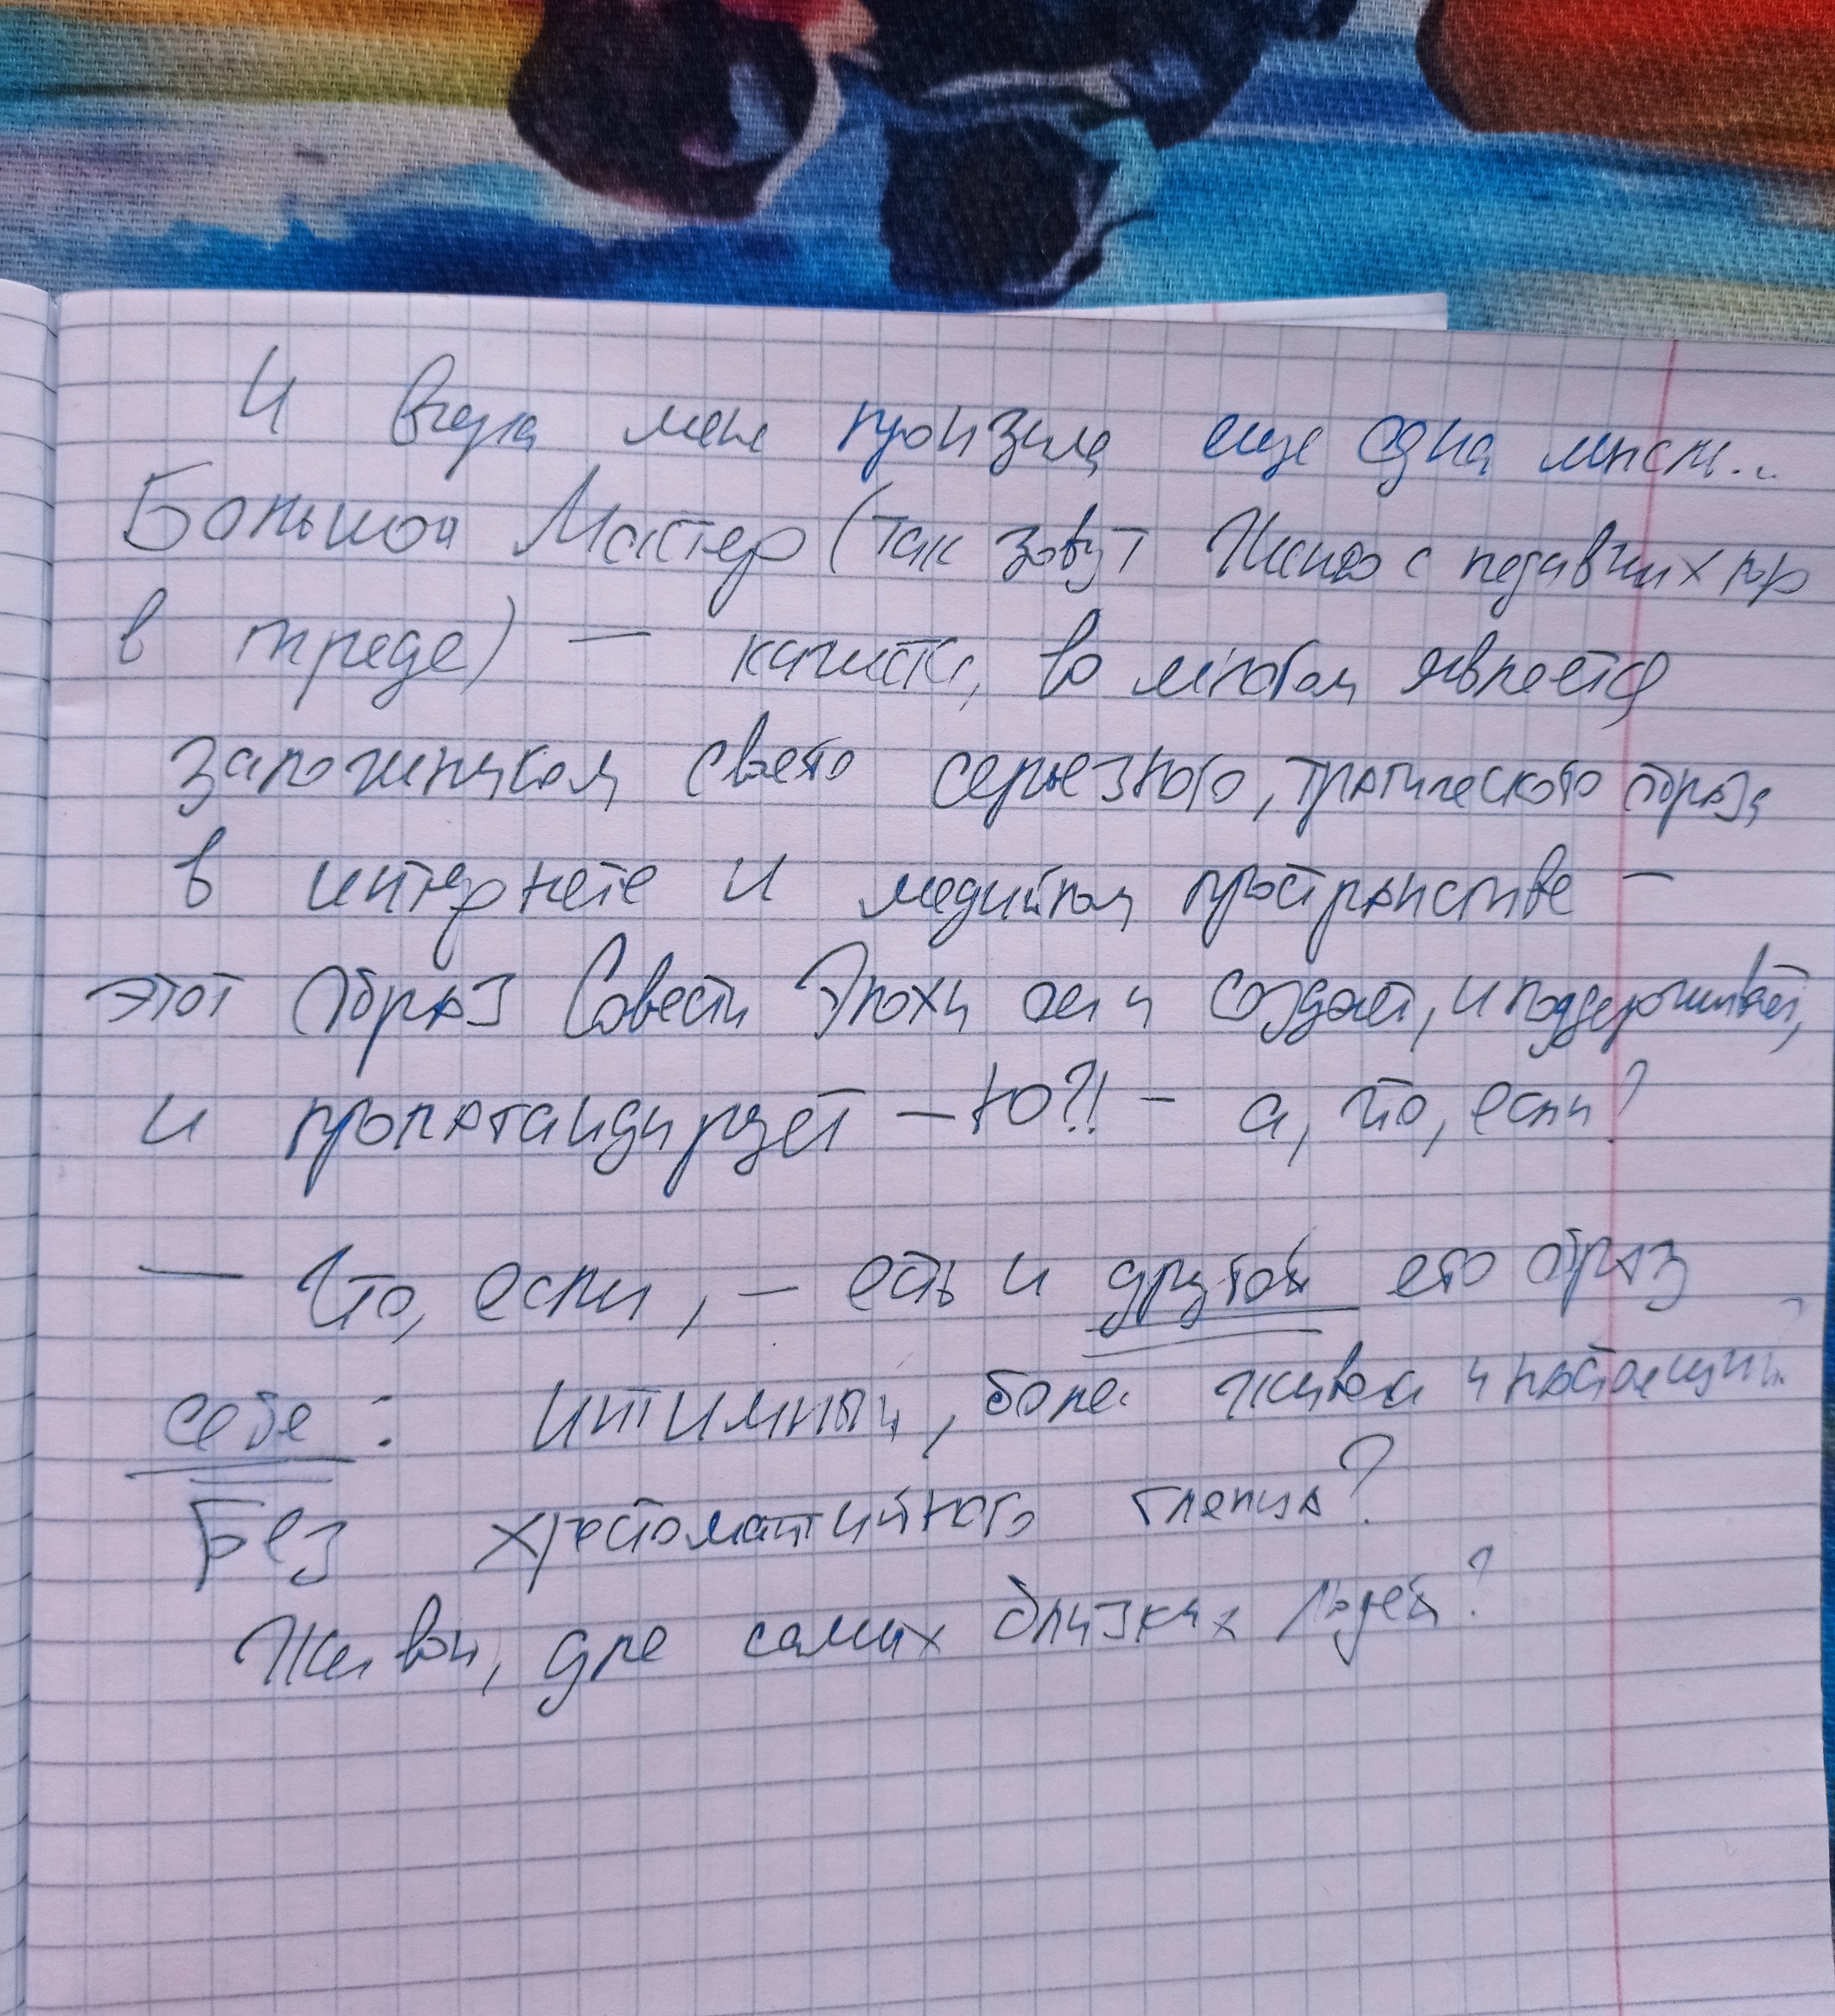 И вчера меня пронзила еще одна мысль...
Большой Мастер (так зовут с недавних пор
в треде) — кажется, во многом является
заложником своего серьезного, трагического образа
в интернете и медийном пространстве —
этот образ Совести Эпохи он и создает, и поддерживает,
и пропагандирует — Ю?! — а, что, если?
— Что, если, — есть и другой его образ
себе: интимный, более живой и настоящий?
Без хрестоматийного глянца?
Живой, для самых близких людей?